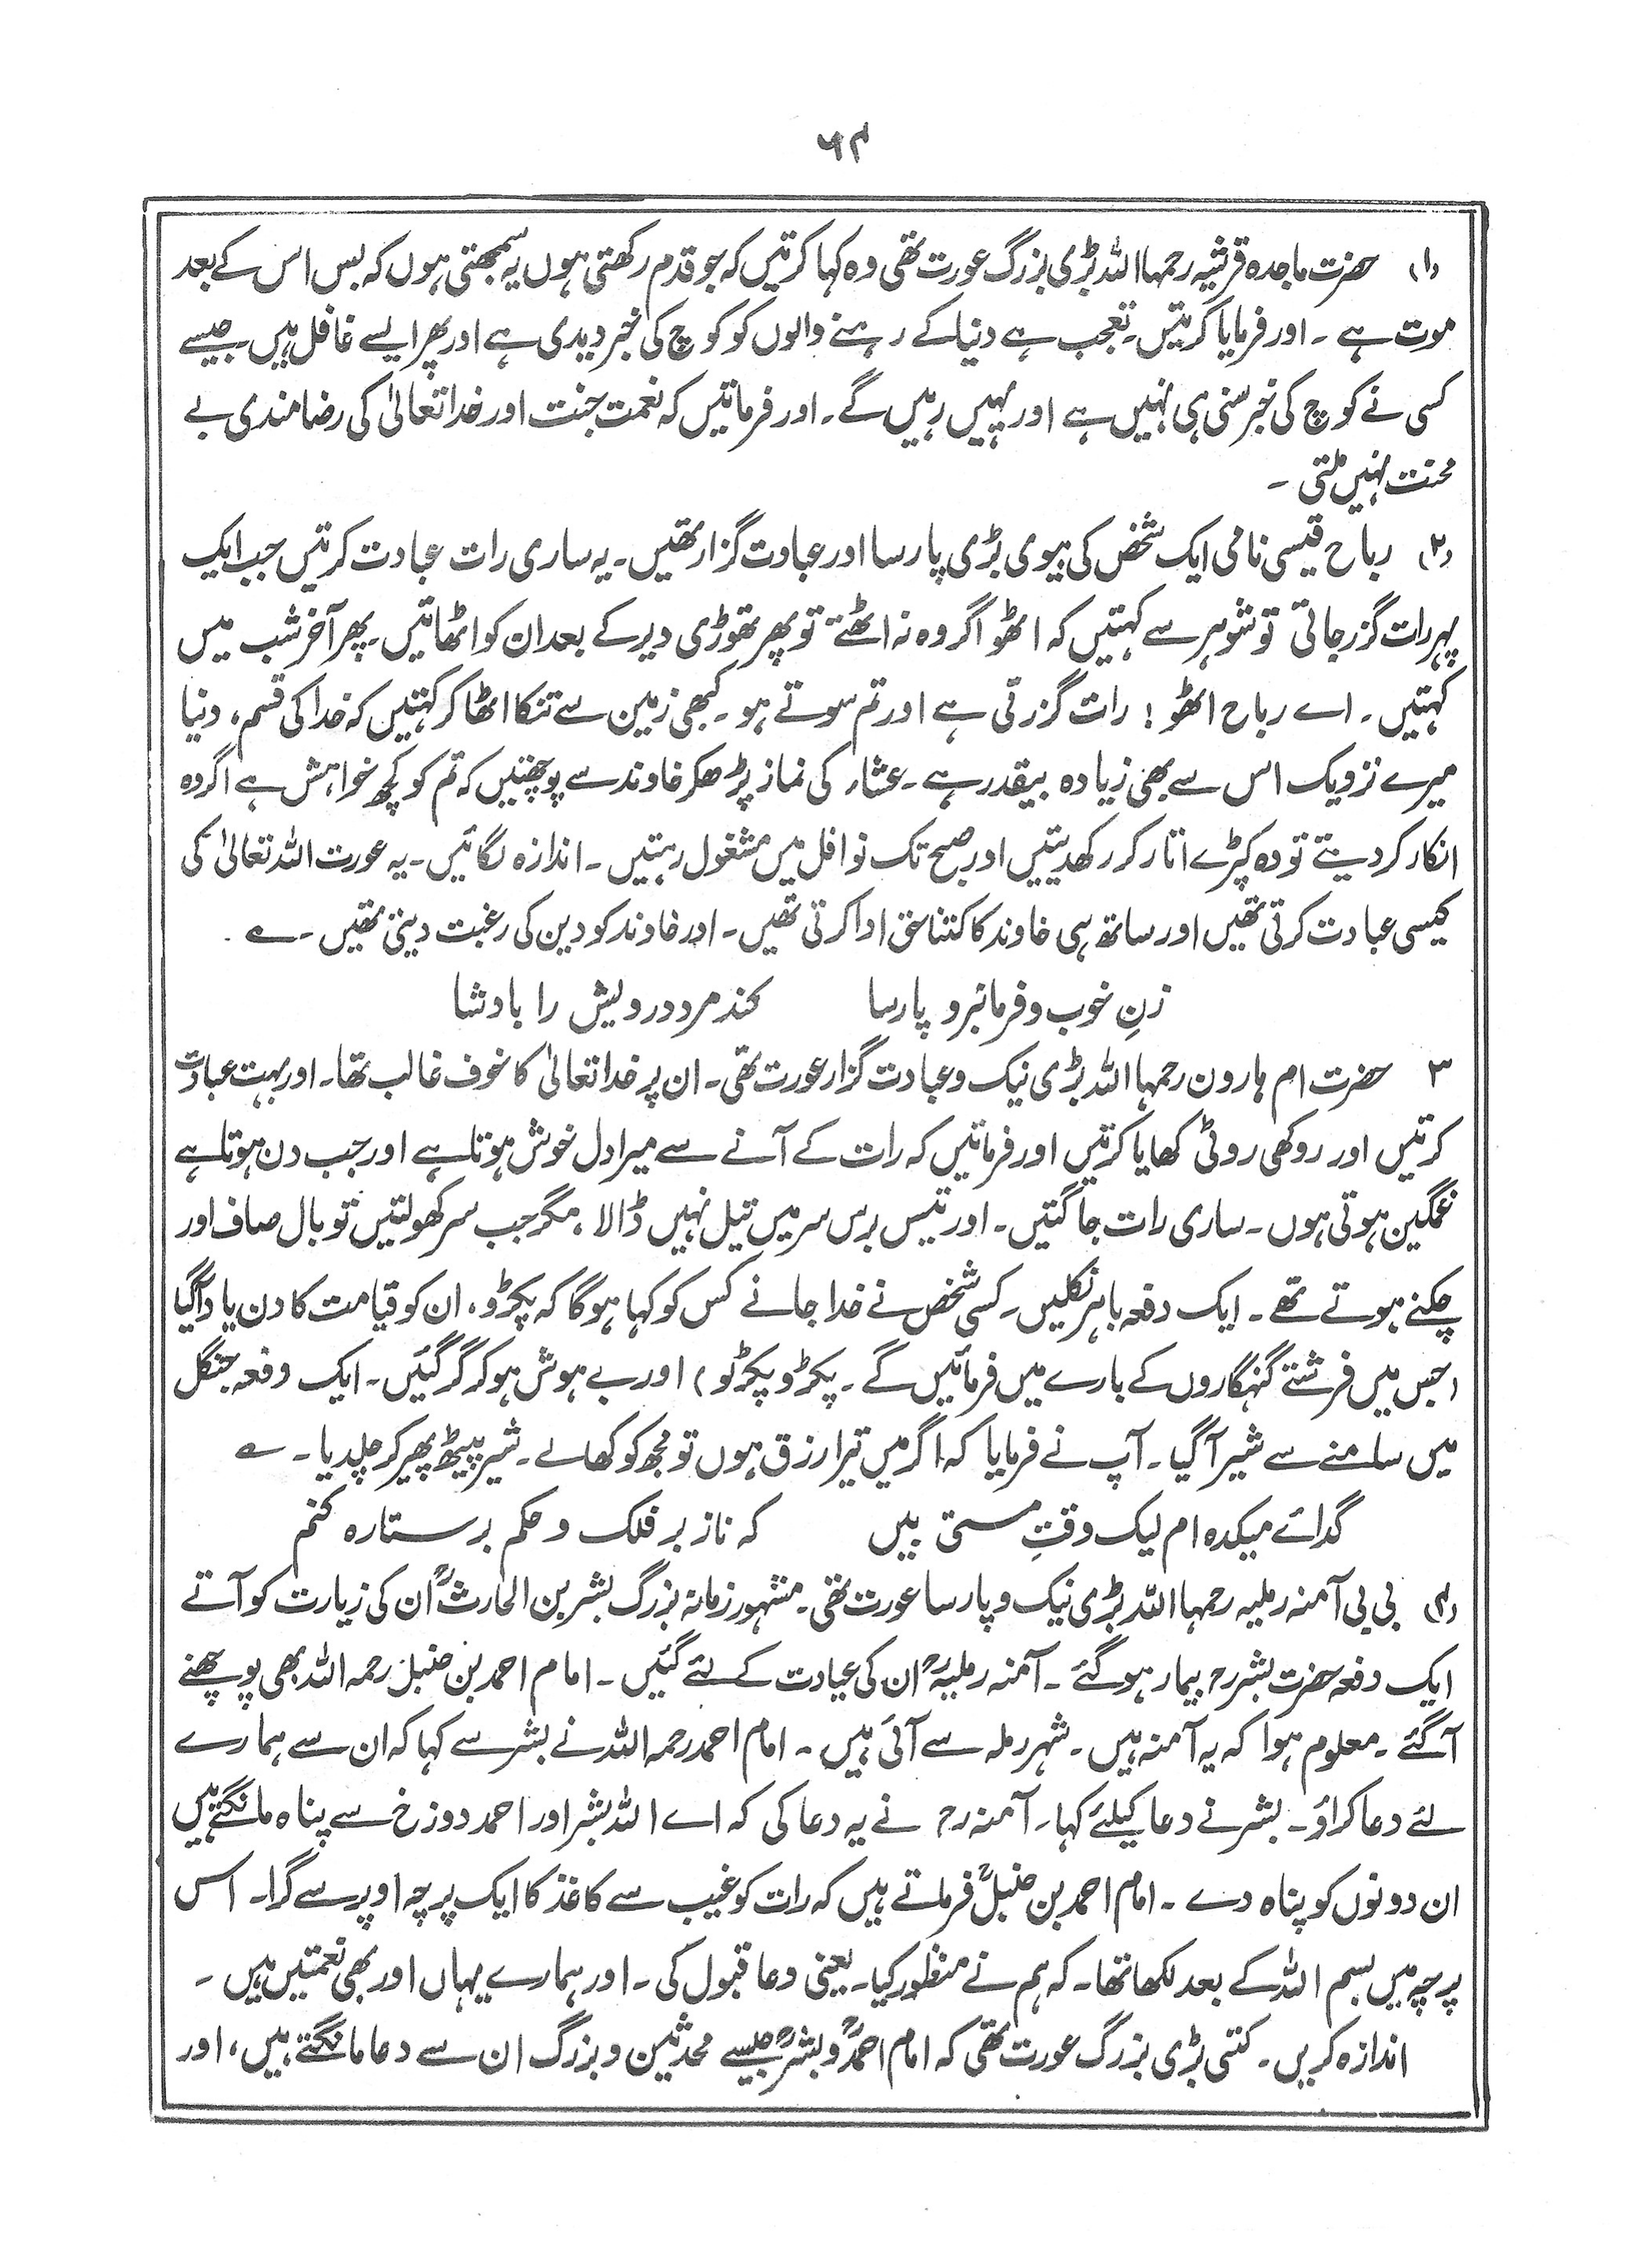 ۶۴
(۱) حضرت ماجدہ قرشیہ رحمہا اللہ بڑی بزرگ عورت تھی وہ کہا کرتیں کہ جو قدم رکھتی ہوں یہ سمجھتی ہوں کہ بس اس کے بعد
موت ہے ۔ اور فرمایا کرتیں۔ تعجب ہے دنیا کے رہنے والوں کو کوچ کی خبر دیدی ہے اور پھر ایسے غافل ہیں۔ جیسے
کسی نے کوچ کی خبر سنی ہی نہیں ہے اور یہیں رہیں گے۔ اور فرماتیں کہ نعمت جنت اور خدا تعالیٰ کی رضامندی بے
محنت نہیں ملتی ۔
(۲) رباح قیسی نامی ایک شخص کی بیوی بڑی پارسا اور عبادت گزار تھیں۔ یہ ساری رات عبادت کرتیں جب ایک
پہر رات گزر جاتی تو شوہر سے کہتیں کہ اٹھو اگر وہ نہ اٹھتے تو پھر تھوڑی دیر کے بعد ان کو اٹھاتیں۔ پھر آخر شب میں
کہتیں۔ اے رباح اٹھو ! رات گزرتی ہے اور تم سوتے ہو۔ کبھی زمین سے تنکا اٹھا کر کہتیں کہ خدا کی قسم، دنیا
میرے نزدیک اس سے بھی زیادہ بیقدر ہے۔ عشاء کی نماز پڑھکر خاوند سے پوچھتیں کہ تم کو کچھ خواہش ہے اگر وہ
انکار کر دیتے تو وہ کپڑے اتار کر رکھدیتیں اور صبح تک نوافل میں مشغول رہتیں۔ اندازہ لگائیں۔ یہ عورت اللہ تعالیٰ کی
کیسی عبادت کرتی تھیں اور ساتھ ہی خاوند کا کتنا حق ادا کرتی تھیں۔ اور خاوند کو دین کی رغبت دیتی تھیں۔ ؎
زنِ خوب و فرمانبر و پارسا کند مرد درویش را بادشا
۳ حضرت ام ہارون رحمہا اللہ بڑی نیک و عبادت گزار عورت تھی۔ ان پر خدا تعالیٰ کا خوف غالب تھا۔ اور بہت عبادت
کرتیں اور روکھی روٹی کھایا کرتیں اور فرماتیں کہ رات کے آنے سے میرا دل خوش ہوتا ہے اور جب دن ہوتا ہے
غمگین ہوتی ہوں۔ ساری رات جاگتیں۔ اور تیس برس سر میں تیل نہیں ڈالا، مگر جب سر کھولتیں تو بال صاف اور
چکنے ہوتے تھے۔ ایک دفعہ باہر نکلیں۔ کسی شخص نے خدا جانے کس کو کہا ہوگا کہ پکڑو، ان کو قیامت کا دن یاد آگیا
(جس میں فرشتے گنہگاروں کے بارے میں فرمائیں گے۔ پکڑو پکڑو) اور بے ہوش ہو کر گر گئیں۔ ایک دفعہ جنگل
میں سامنے سے شیر آگیا۔ آپ نے فرمایا کہ اگر میں تیرا رزق ہوں تو مجھ کو کھالے۔ شیر پیٹھ پھیر کر چلدیا۔ ؎
گدائے میکدہ ام لیک وقتِ مستی بیں کہ ناز بر فلک و حکم بر ستارہ کنم
(۴) بی بی آمنہ رملیہ رحمہا اللہ بڑی نیک و پارسا عورت تھی۔ مشہور زمانہ بزرگ بشر بن الحارثؒ ان کی زیارت کو آتے
ایک دفعہ حضرت بشر رح بیمار ہوگئے۔ آمنہ رملیہؒ ان کی عیادت کے لئے گئیں۔ امام احمد بن حنبل رحمہ اللہ بھی پوچھنے
آگئے۔ معلوم ہوا کہ یہ آمنہ ہیں۔ شہر رملہ سے آئی ہیں۔ امام احمد رحمہ اللہ نے بشر سے کہا کہ ان سے ہمارے
لئے دعا کراؤ۔ بشر نے دعا کیلئے کہا۔ آمنہ رح نے یہ دعا کی کہ اے اللہ بشر اور احمد دوزخ سے پناہ مانگتے ہیں
ان دونوں کو پناہ دے۔ امام احمد بن حنبلؒ فرماتے ہیں کہ رات کو غیب سے کاغذ کا ایک پرچہ اوپر سے گرا۔ اس
پرچہ میں بسم اللہ کے بعد لکھا تھا۔ کہ ہم نے منظور کیا۔ یعنی دعا قبول کی۔ اور ہمارے یہاں اور بھی نعمتیں ہیں ۔
اندازہ کریں۔ کتنی بڑی بزرگ عورت تھی کہ امام احمدؒ و بشرؒ جیسے محدثین و بزرگ ان سے دعا مانگتے ہیں، اور